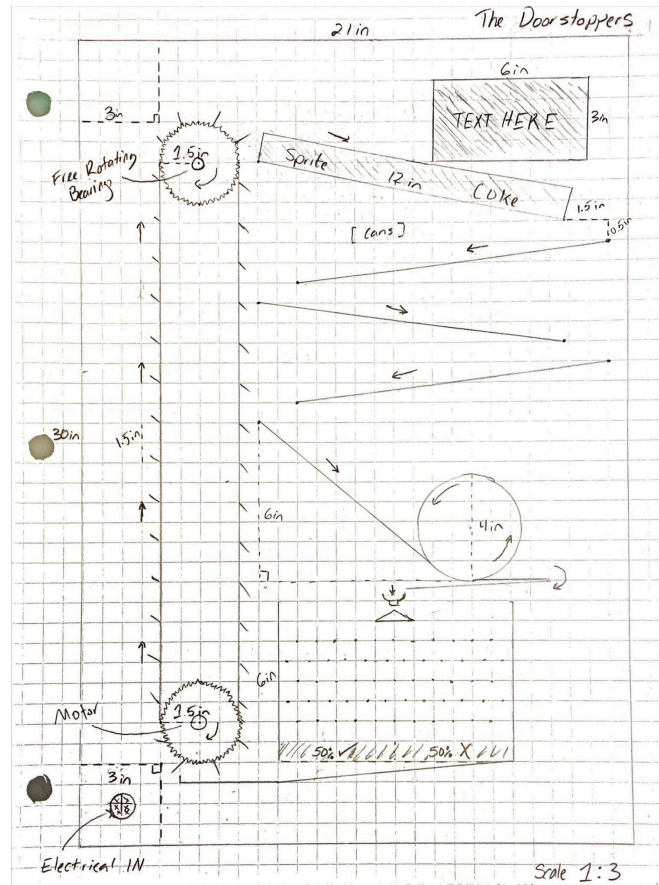 The Doorstoppers
21in
6in
3in
TEXT HERE
3in
1.5in
Free Rotating
Bearing
Sprite
12 in
Coke
1.5in
0.5in
[Cans]
30in
1.5in
6in
4in
6in
Motor
1.5in
50% ✓
50% X
3in
Electrical IN
Scale 1:3